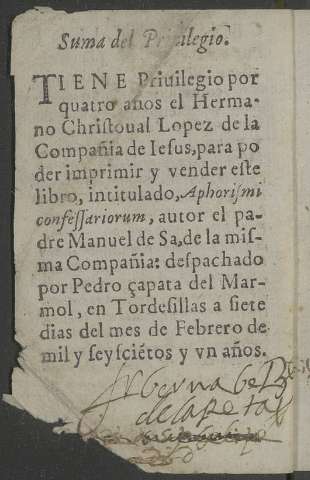 Suma del Priuilegio.
TIENE Priuilegio por
quatro años el Herma-
no Christoual Lopez de la
Compañia de Iesus, para po
der imprimir y vender este
libro, intitulado, Aphorismi
confessariorum, autor el pa-
dre Manuel de Sa, de la mis-
ma Compañia: despachado
por Pedro çapata del Mar-
mol, en Tordesillas a siete
dias del mes de Febrero de
mil y seysciétos y vn años.